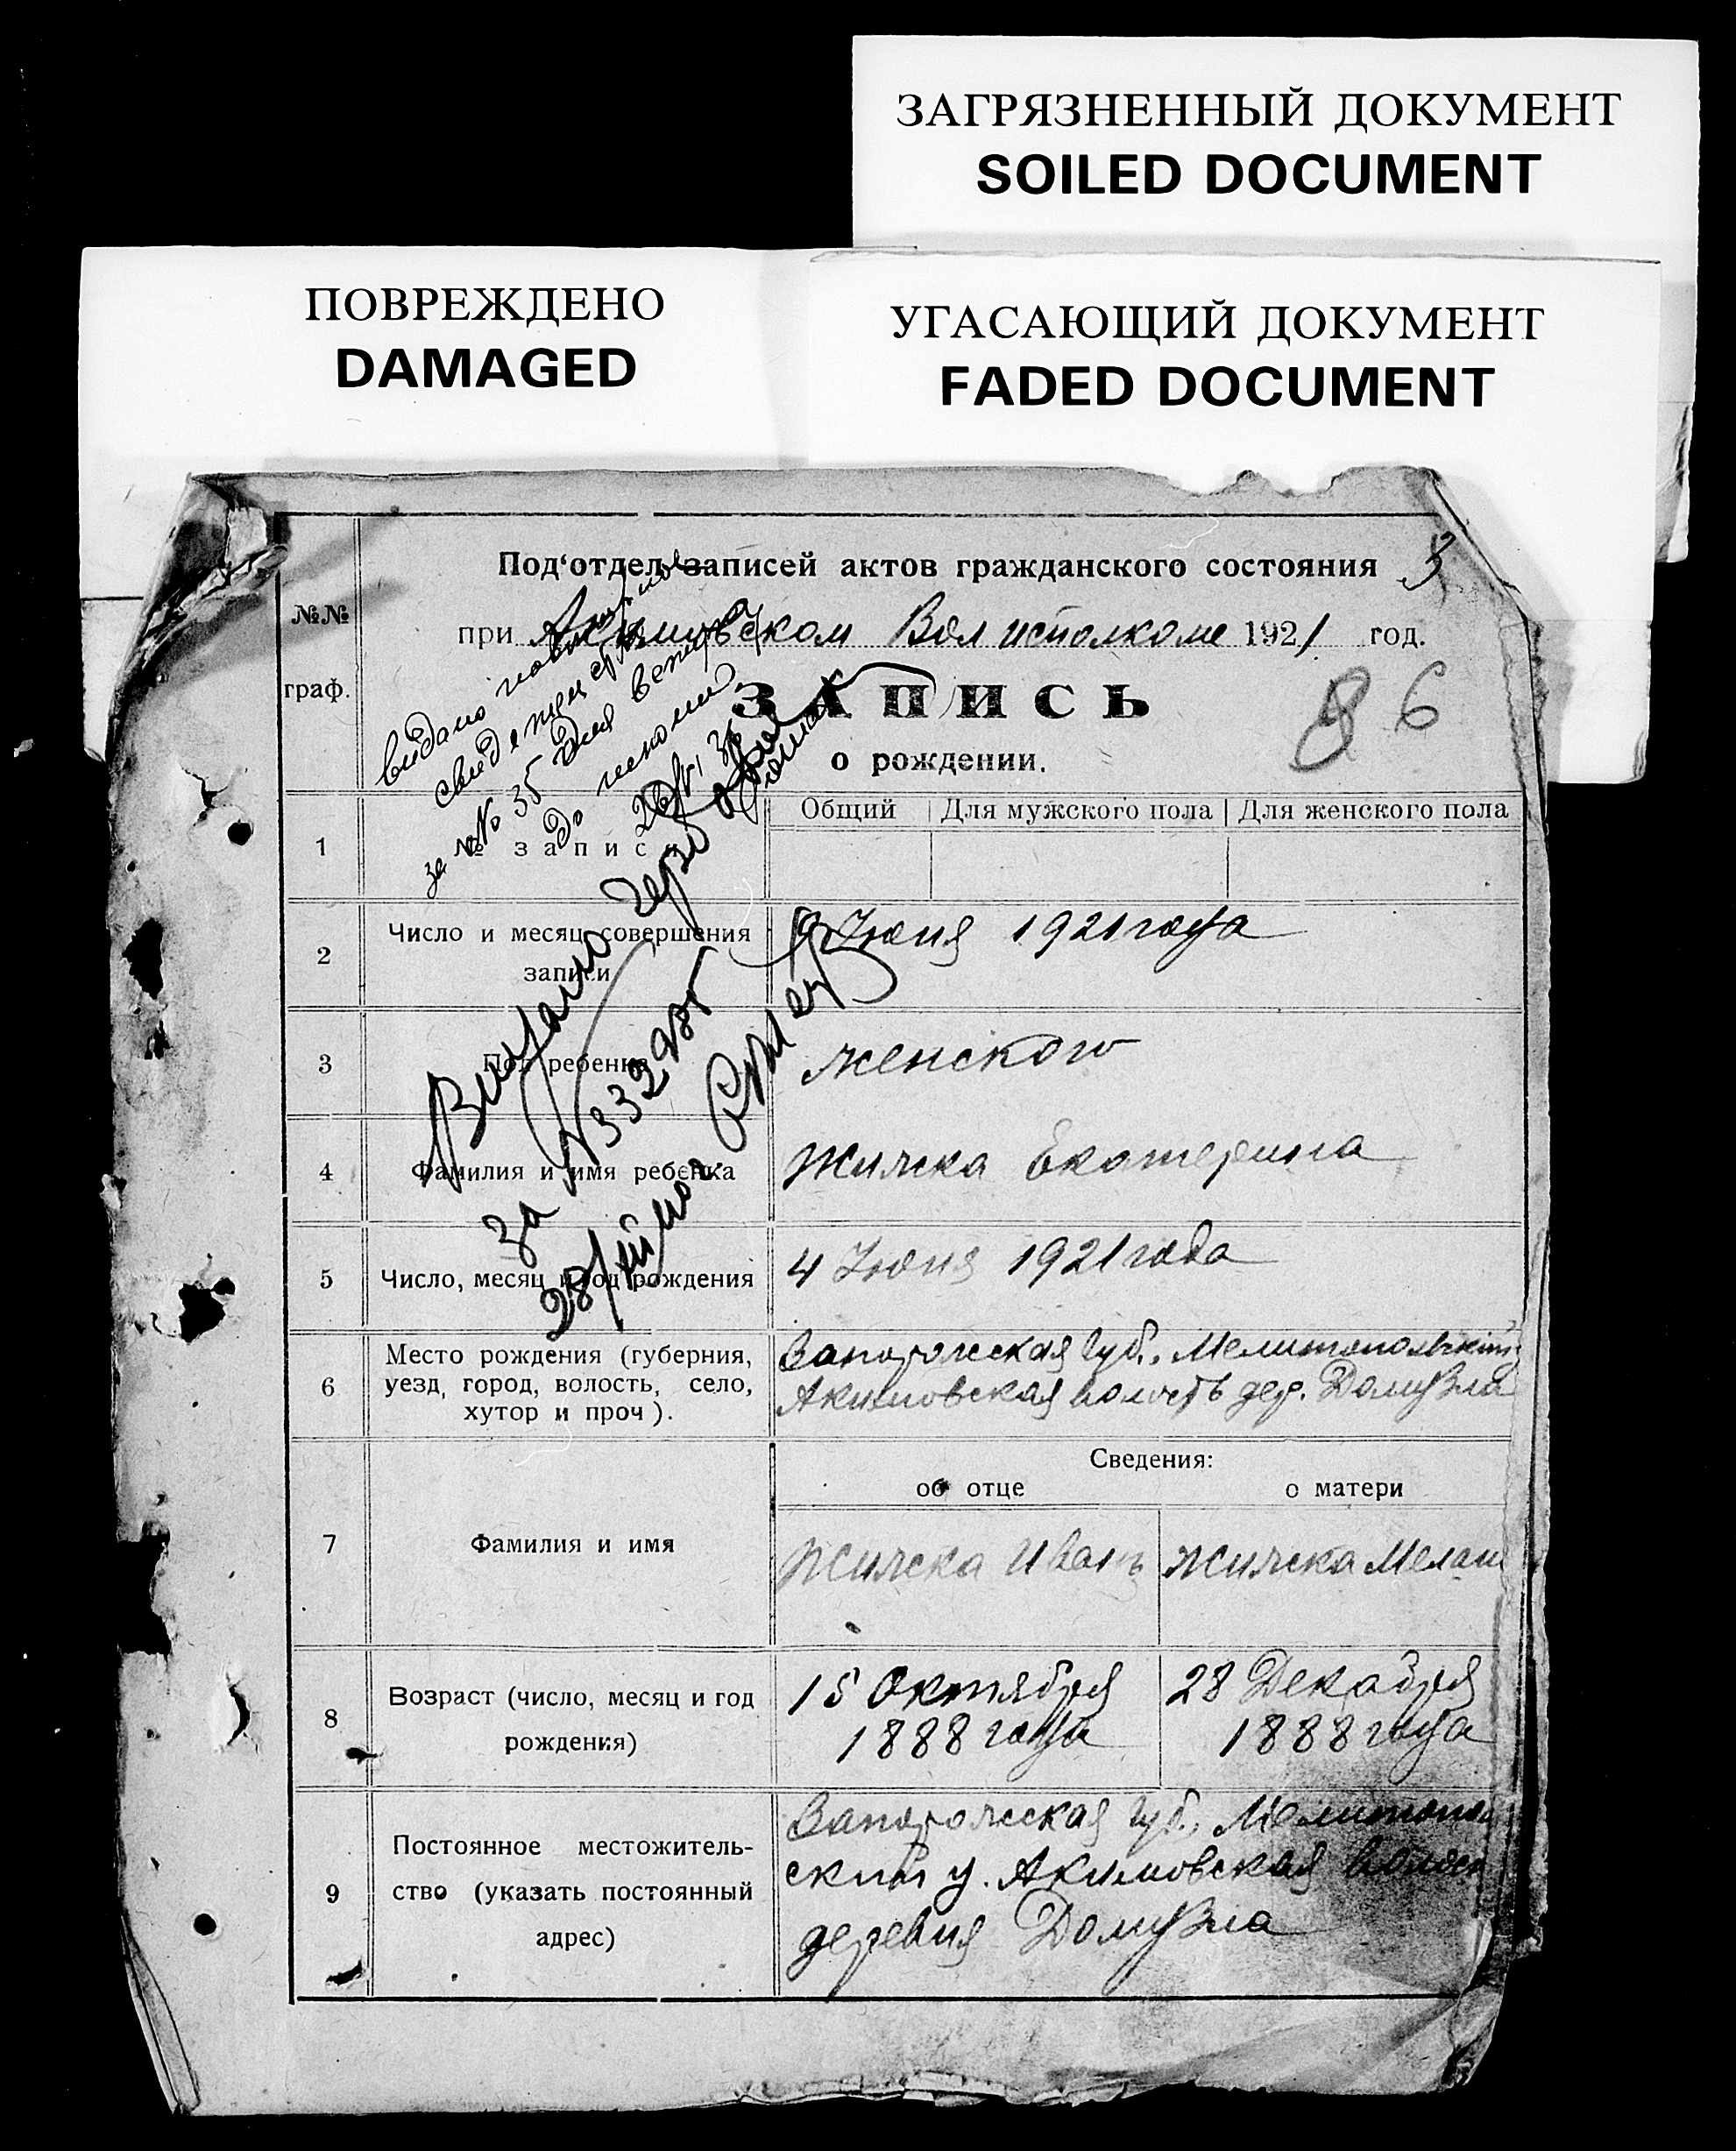 ЗАГРЯЗНЕННЫЙ ДОКУМЕНТ
SOILED DOCUMENT
ПОВРЕЖДЕНО
DAMAGED
УГАСАЮЩИЙ ДОКУМЕНТ
FADED DOCUMENT
Под‘отдел записей актов гражданского состояния 3
при Акимовском Волисполкоме 1921 год.
№№
граф.
ЗАПИСЬ
86
о рождении.
видано повторное
за № 35 для
до школи
Видано
за № 332
28/III
Общий Для мужского пола Для женского пола
1 № записи
2 Число и месяц совершения
записи
Июня 1921 года
3 Пол ребенка женского
4 Фамилия и имя ребенка Жилка Екатерина
5 Число, месяц и год рождения 4 Июня 1921 года
6 Место рождения (губерния,
уезд, город, волость, село,
хутор и проч).
Запорожская губ., Мелитопольский
Акимовская волость дер. Домузла
Сведения:
об отце о матери
7 Фамилия и имя Жилка Иванъ Жилка Мелан
8 Возраст (число, месяц и год
рождения)
15 Октября 28 Декабря
1888 года 1888 года
9 Постоянное местожитель-
ство (указать постоянный
адрес)
Запорожская губ., Мелитополь
ский у. Акимовская волость
деревня Домузла